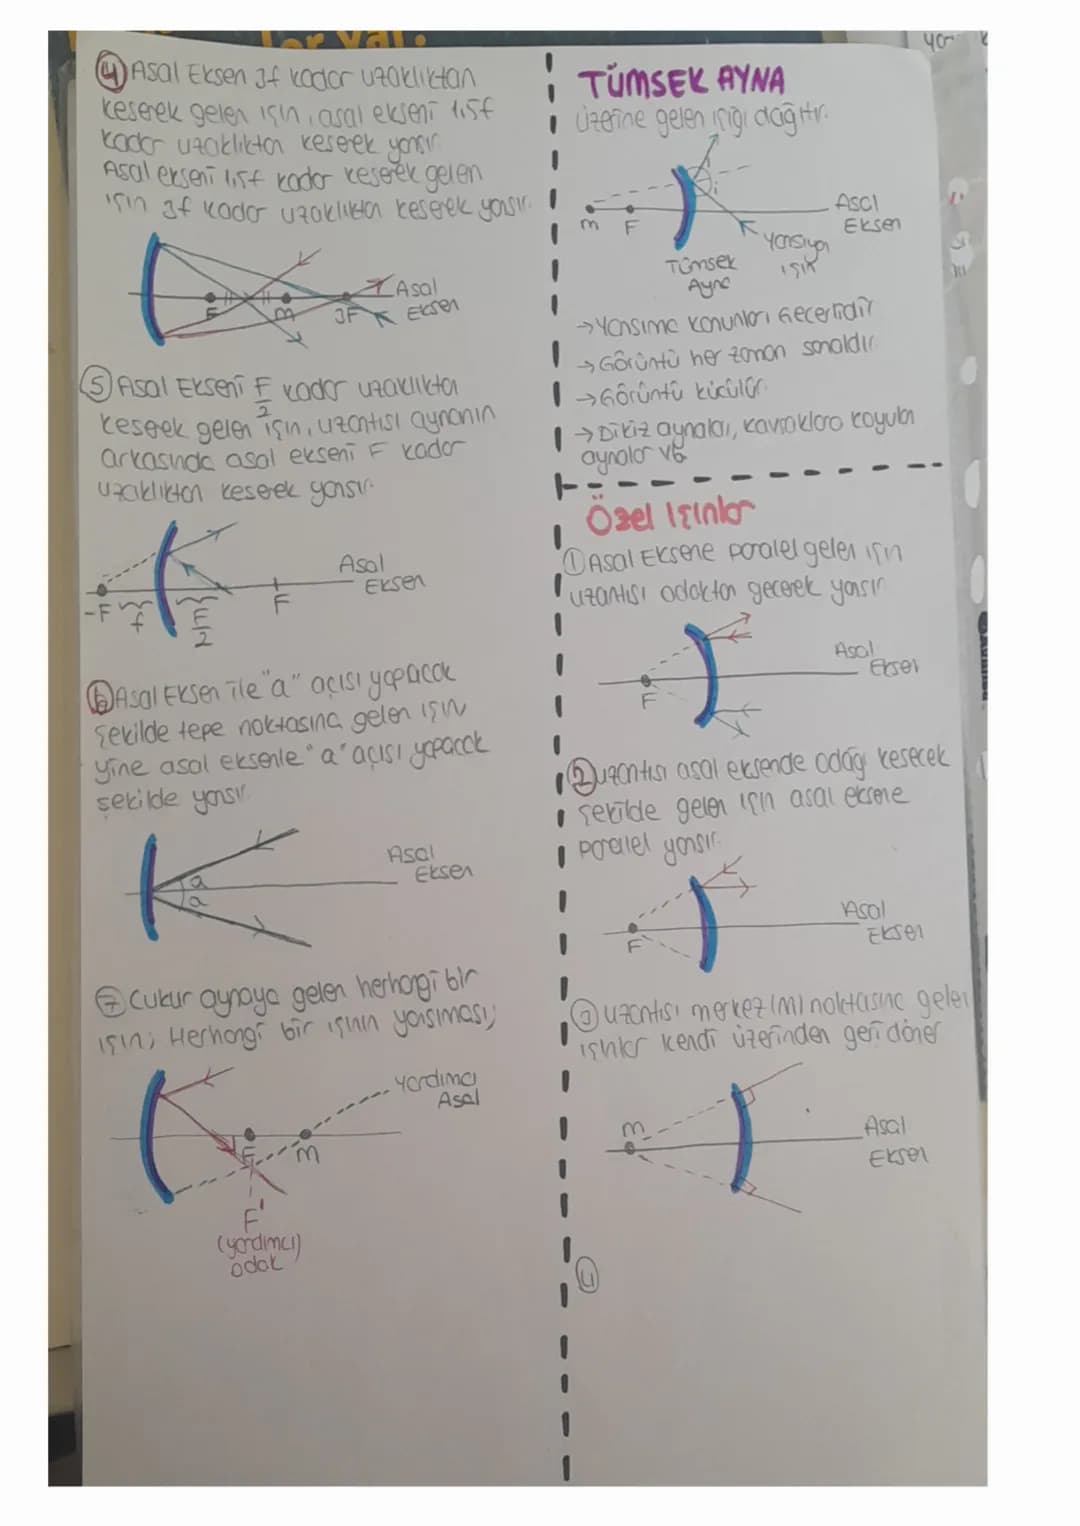 ④ Asal Eksen 3f kadar uzaklıktan
keserek gelen ışın, asal ekseni 1.5f
kadar uzaklıktan keserek yansır.
Asal ekseni 1,5f kadar keserek gelen
ışın 3f kadar uzaklıktan keserek yansır.
F
M
3F
Asal
Eksen
⑤ Asal Ekseni F/2 kadar uzaklıktan
keserek gelen ışın, uzantısı aynanın
arkasında asal ekseni F kadar
uzaklıktan keserek yansır.
-F
f
F/2
F
Asal
Eksen
⑥ Asal Eksen ile "a" açısı yapacak
şekilde tepe noktasına gelen ışın
yine asal eksenle "a" açısı yapacak
şekilde yansır.
a
a
Asal
Eksen
⑦ Çukur aynaya gelen herhangi bir
ışın; Herhangi bir ışının yansıması;
Yardımcı
Asal
F
M
F'
(yardımcı)
odak
TÜMSEK AYNA
Üzerine gelen ışığı dağıtır.
M
F
i
Asal
Eksen
Yansıyan
ışık
Tümsek
Ayna
→Yansıma Kanunları Geçerlidir
→Görüntü her zaman sanaldır
→Görüntü küçülür.
→Dikiz aynaları, kavşaklara koyulan
aynalar vb
Özel Işınlar
① Asal Eksene paralel gelen ışın
uzantısı odaktan geçerek yansır
F
Asal
Eksen
② uzantısı asal eksende odağı kesecek
şekilde gelen ışın asal eksene
paralel yansır.
F
Asal
Eksen
③ uzantısı merkez (M) noktasına gelen
ışınlar kendi üzerinden geri döner
M
Asal
Eksen
④